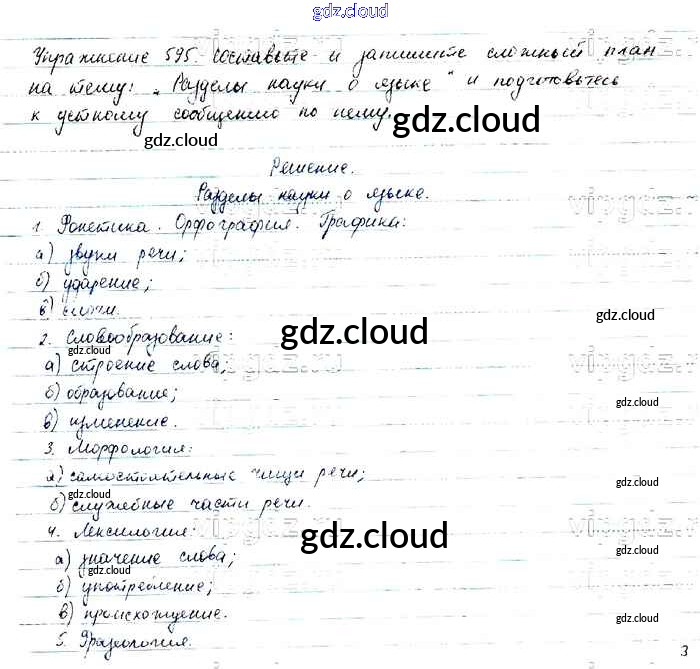 gdz.cloud
Упражнение 595. Составьте и запишите сложный план
на тему: „Разделы науки о языке" и подготовьтесь
к устному сообщению по нему.
gdz.cloud
gdz.cloud
Решение.
Разделы науки о языке.
vipgdz.ru
vipgdz.r
1. Фонетика. Орфография. Графика:
а) звуки речи;
б) ударение;
в) слоги.
gdz.cloud
2. Словообразование:
gdz.cloud
gdz.cloud
а) строение слова;
vipgdz.ru
vipgdz.r
б) образование;
gdz.cloud
в) изменение.
3. Морфология:
а) самостоятельные части речи;
gdz.cloud
gdz.cloud
б) служебные части речи.
4. Лексикология:
gdz.cloud
vipgdz.ru
vipgdz.r
а) значение слова;
gdz.cloud
gdz.cloud
б) употребление;
в) происхождение.
gdz.cloud
5. Фразеология.
3